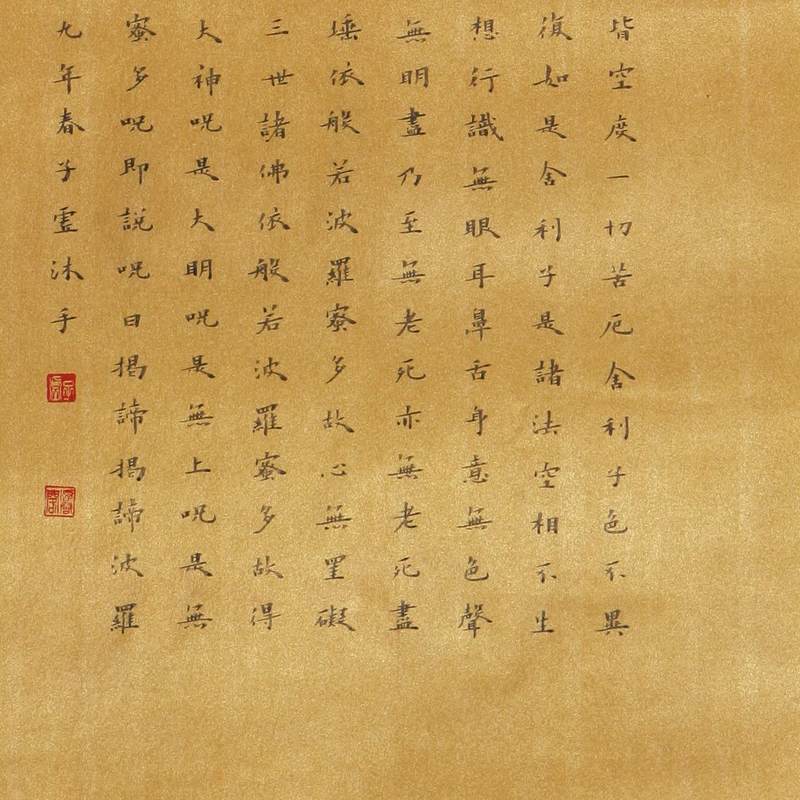 皆空度一切苦厄舍利子色不異
復如是舍利子是諸法空相不生
想行識無眼耳鼻舌身意無色聲
無明盡乃至無老死亦無老死盡
埵依般若波羅蜜多故心無罣礙
三世諸佛依般若波羅蜜多故得
大神咒是大明咒是無上咒是無
蜜多咒即說咒曰揭諦揭諦波羅
九年春子靈沐手